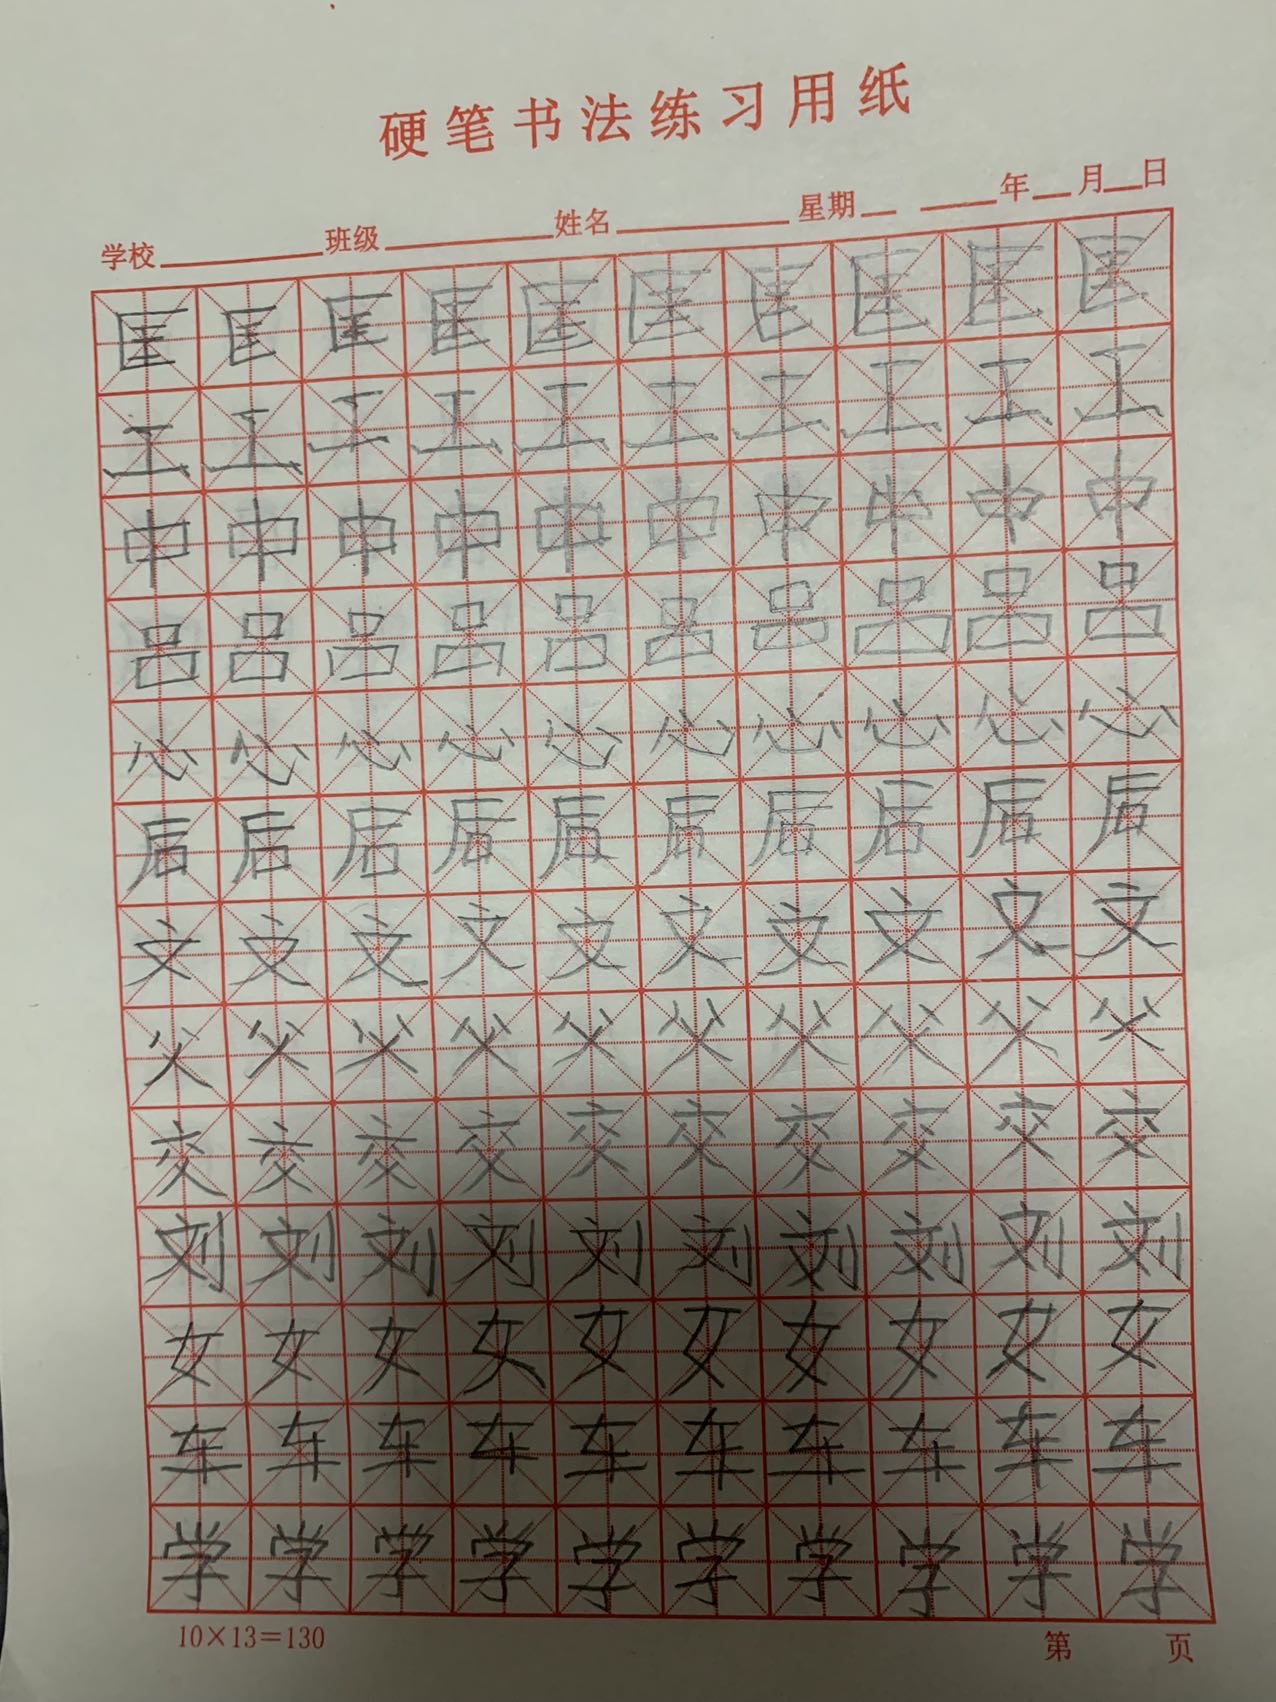 硬笔书法练习用纸
学校 班级 姓名 星期 年 月 日
匡匡匡匡匡匡匡匡匡匡
工工工工工工工工工工
中中中中中中中中中中
吕吕吕吕吕吕吕吕吕吕
心心心心心心心心心心
后后后后后后后后后后
文文文文文文文文文文
父父父父父父父父父父
交交交交交交交交交交
刘刘刘刘刘刘刘刘刘刘
女女女女女女女女女女
车车车车车车车车车车
学学学学学学学学学学
10×13=130 第 页